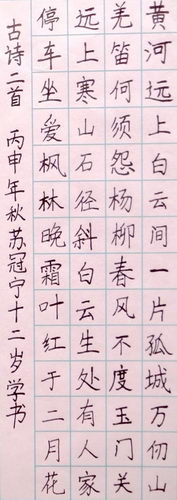 黄河远上白云间一片孤城万仞山
羌笛何须怨杨柳春风不度玉门关
远上寒山石径斜白云生处有人家
停车坐爱枫林晚霜叶红于二月花
古诗二首 丙申年秋苏冠宁十二岁学书